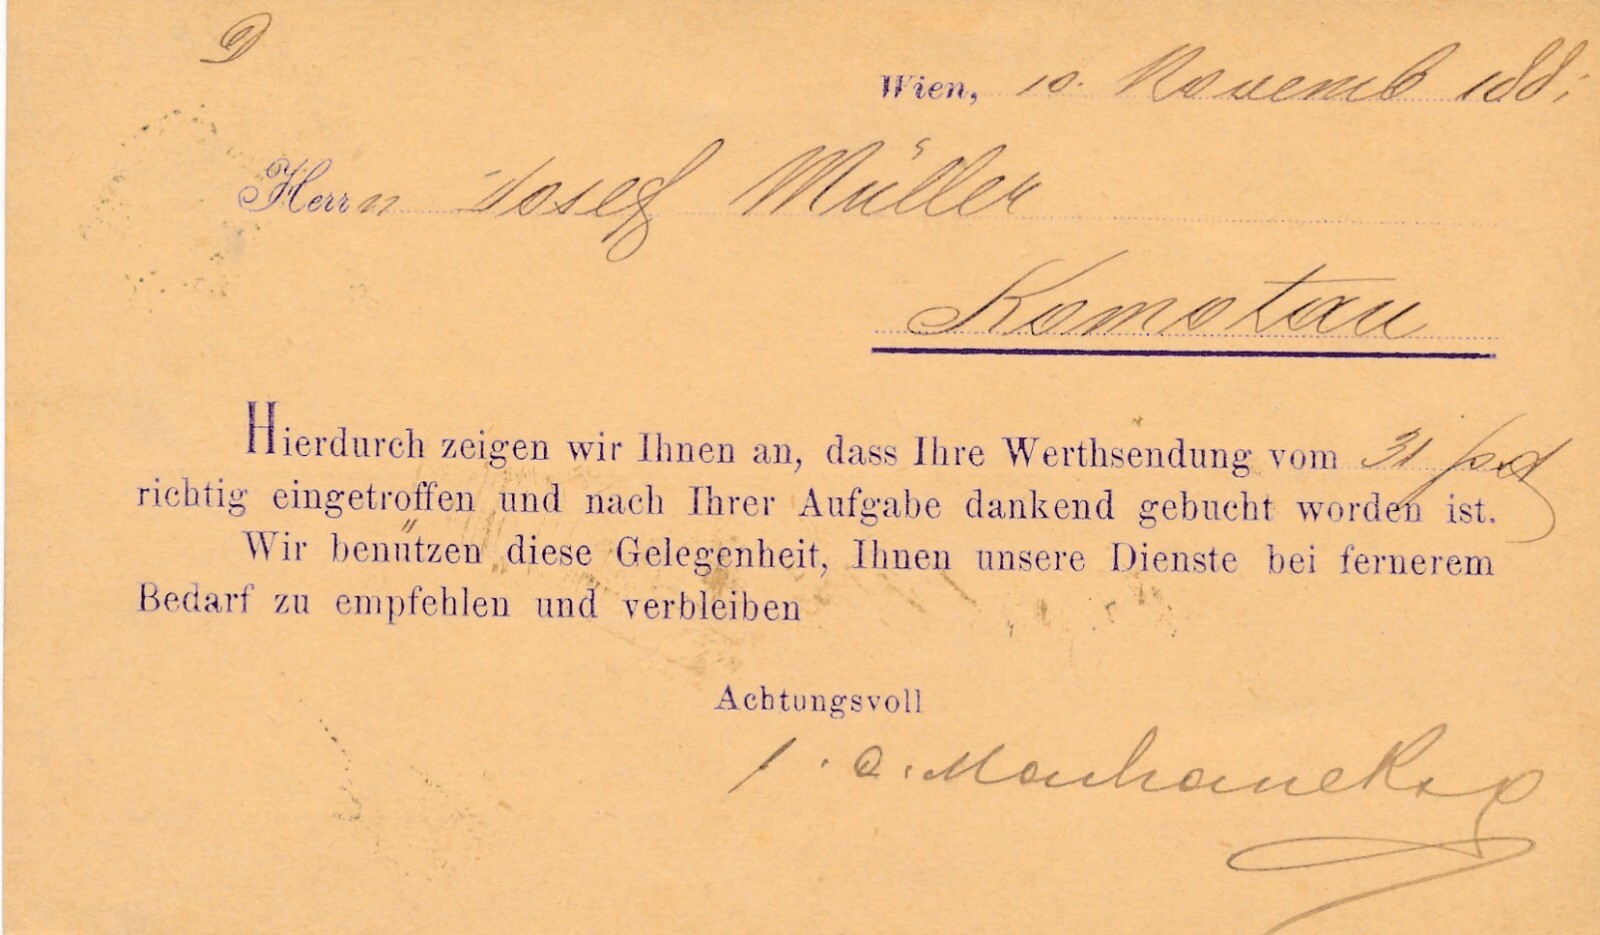 D
Wien, 10. Novemb 188
Herrn Josef Müller
Komotau
Hierdurch zeigen wir Ihnen an, dass Ihre Werthsendung vom 31
richtig eingetroffen und nach Ihrer Aufgabe dankend gebucht worden ist.
Wir benützen diese Gelegenheit, Ihnen unsere Dienste bei fernerem
Bedarf zu empfehlen und verbleiben
Achtungsvoll